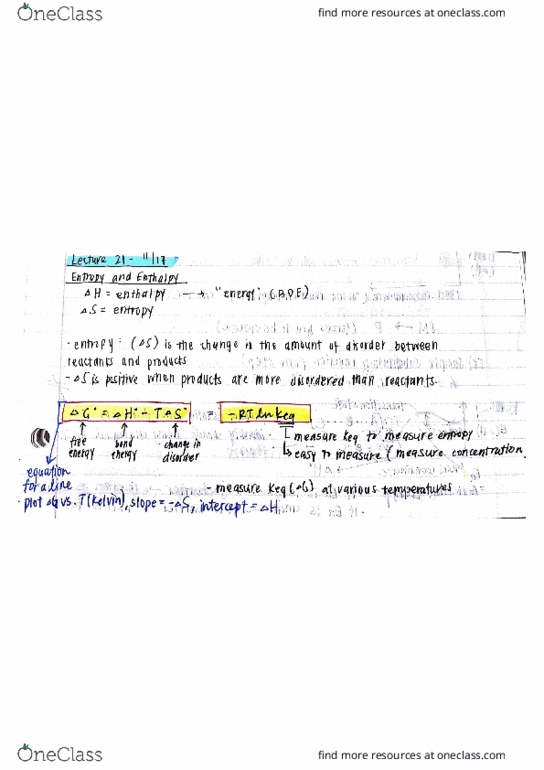 OneClass
find more resources at oneclass.com
Lecture 21 - 11/17
Entropy and Enthalpy
ΔH = enthalpy → "energy" (B.D.E.)
ΔS = entropy
· entropy: (ΔS) is the change is the amount of disorder between
reactants and products
- ΔS is positive when products are more disordered than reactants.
ΔG° = ΔH° - TΔS° = -RT ln Keq
free energy
bond energy
change in disorder
measure Keq to measure entropy
easy to measure (measure concentration.
equation for a line
- measure Keq (ΔG) at various temperatures
· plot ΔG vs. T(Kelvin), slope = -ΔS, intercept = ΔH
OneClass
find more resources at oneclass.com